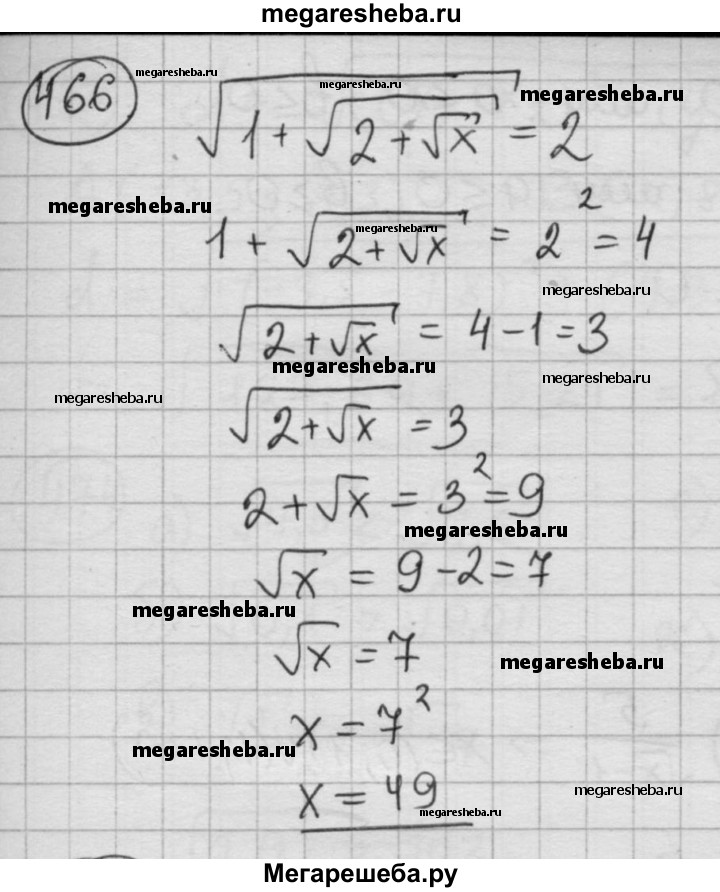 megaresheba.ru
466 megaresheba.ru
√(1 + √(2 + √x)) = 2 megaresheba.ru megaresheba.ru
megaresheba.ru
1 + √(2 + √x) = 2² = 4 megaresheba.ru
megaresheba.ru
√(2 + √x) = 4 - 1 = 3
megaresheba.ru megaresheba.ru
megaresheba.ru
√(2 + √x) = 3
2 + √x = 3² = 9
megaresheba.ru
√x = 9 - 2 = 7
megaresheba.ru
√x = 7 megaresheba.ru
x = 7²
megaresheba.ru
x = 49 megaresheba.ru
megaresheba.ru
Мегарешеба.ру